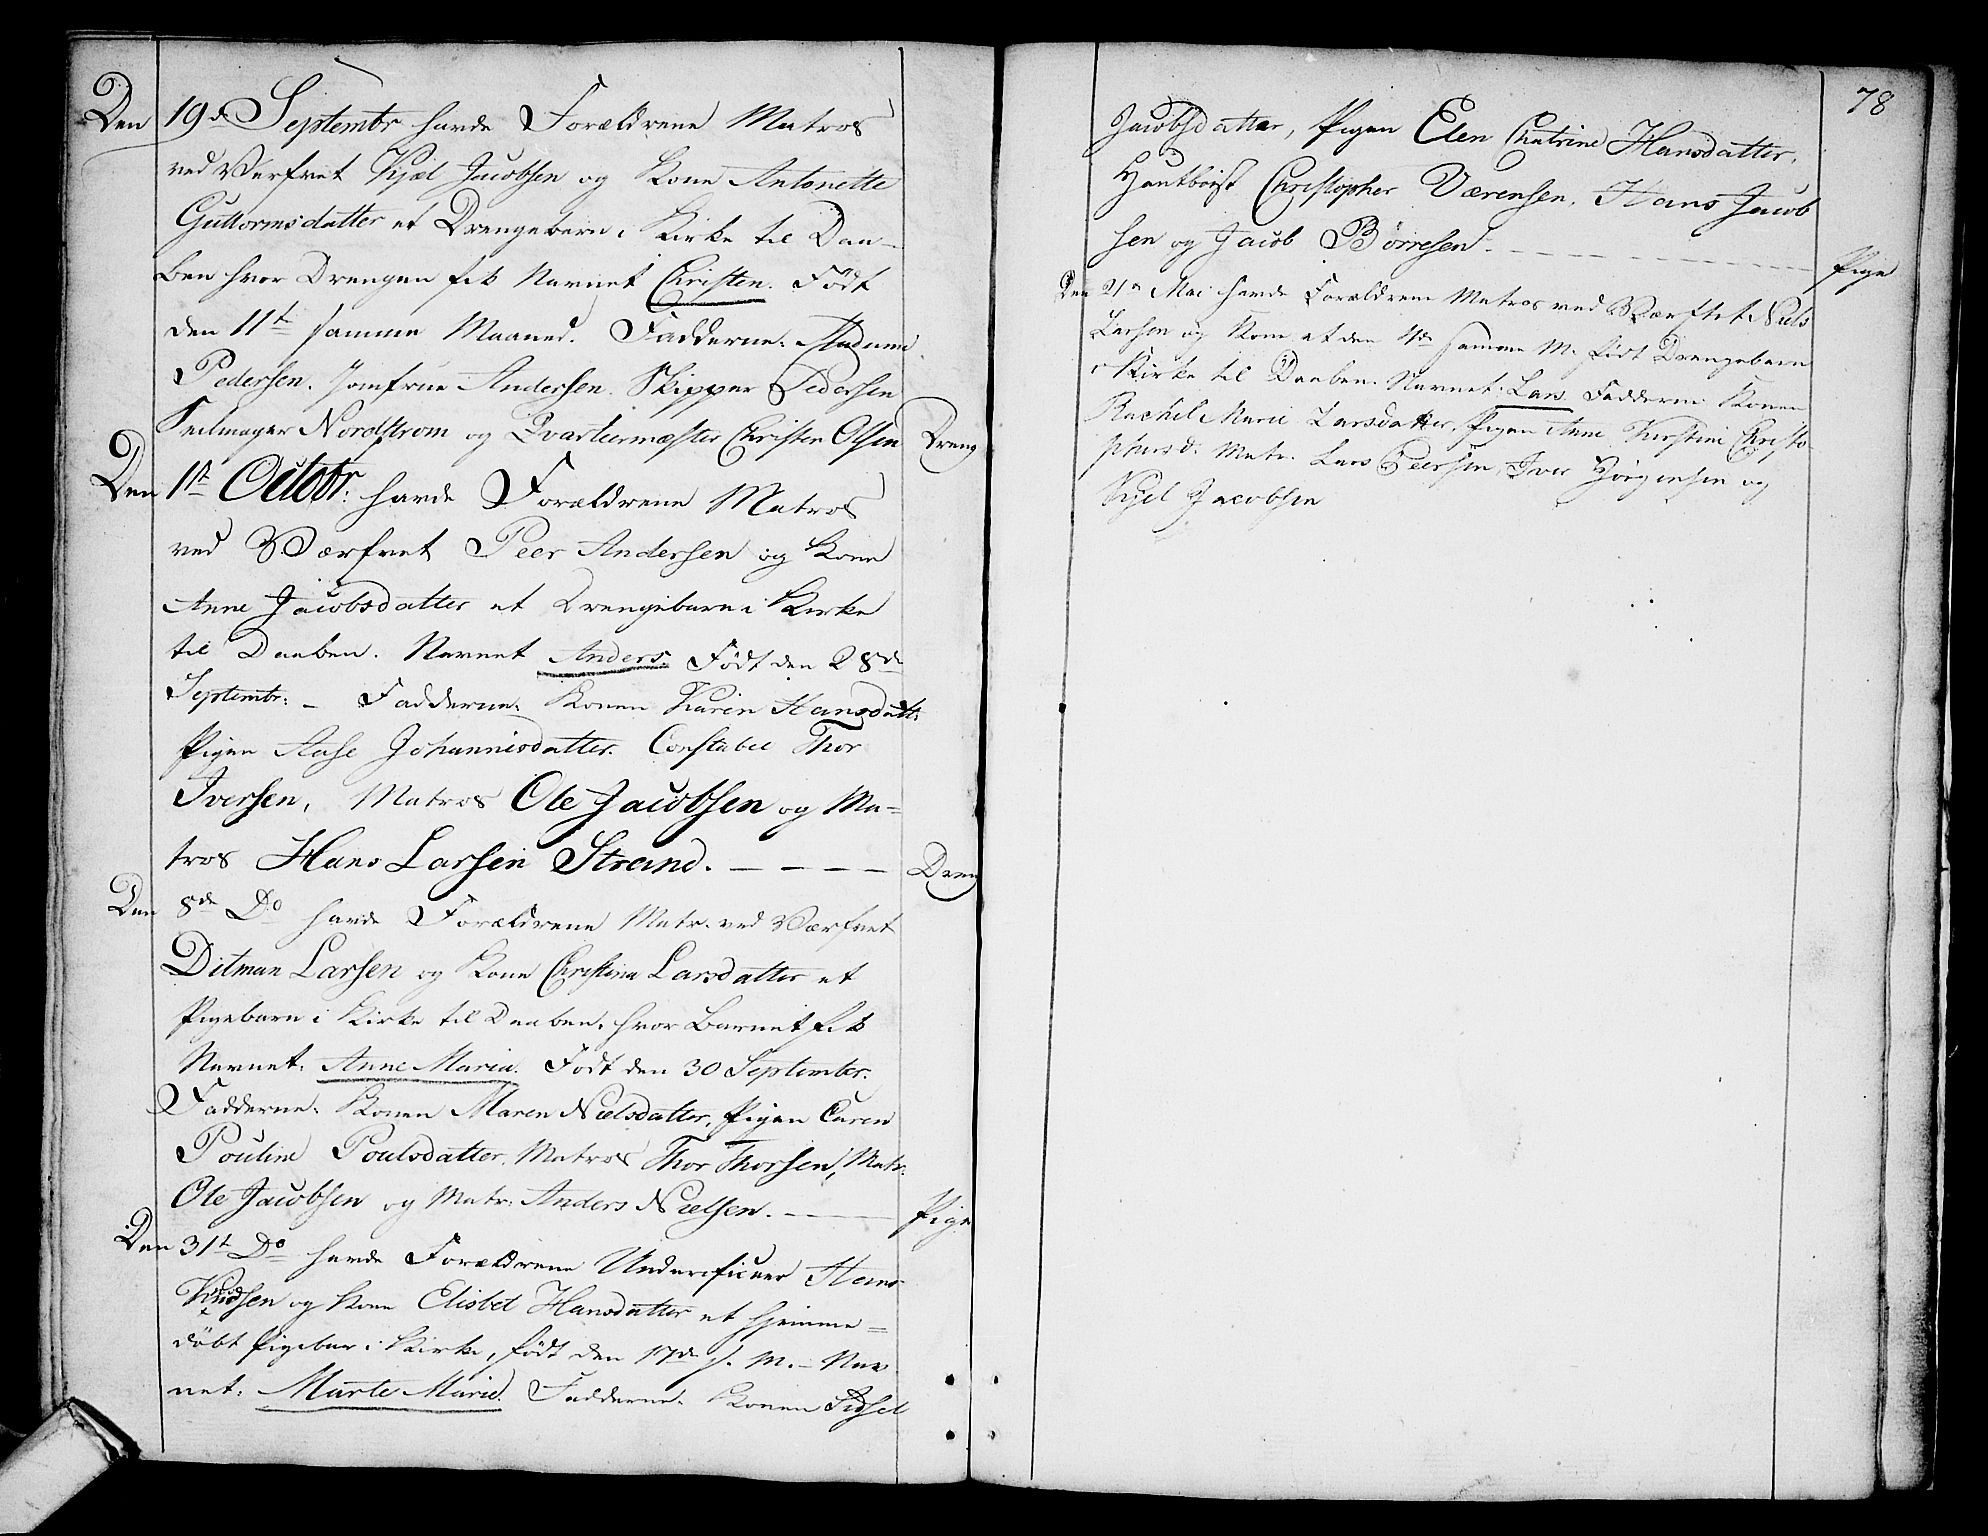 Den 19d Septembr havde Forældrene Matros
ved Værfvet Kjæl Jacobsen og Kone Antonette
Guttormsdatter et Drengebarn i Kirke til Daa-
ben hvor Drengen fik Navnet Christen. Födt
den 11t samme Maaned. Fadderne: Madame
Pedersen. Jomfrue Andersen. Skipper Pedersen
Seilmager Nordstrøm og Qvarteermester Christen Olsen Dreng
Den 1st Octobr: havde Forældrene Matros
ved Værfvet Peer Andersen og Kone
Anne Jacobsdatter et Drengebarn i Kirke
til Daaben. Navnet Anders. Födt den 28de
Septembr: - Fadderne: Konen Karen Hansdatt:
Pigen Aase Johannisdatter. Constabel Thor
Iversen, Matros Ole Jacobsen og Ma=
tros Hans Larsen Strand. - - - - Dreng
Den 8de Do havde Forældrene Matr. ved Værfvet
Ditman Larsen og Kone Christina Larsdatter et
Pigebarn i Kirke til Daaben, hvor Barnet fik
Navnet: Anne Maria. Födt den 30 September.
Fadderne: Konen Maren Nielsdatter, Pigen Caren
Pouline Poulsdatter, Matros Thor Thorsen, Matr:
Ole Jacobsen og Matr: Anders Nielsen. - - - Pige
Den 31t Do havde Forældrene Underofficeer Hans
Knudsen og Kone Elisbet Hansdatter et hjemme=
döbt Pigebar i Kirke, födt den 17de s. M. - Nav
net: Marte Marie. Fadderne: Konen Sidsel
78
Jacobsdatter, Pigen Elen Chatrine Hansdatter,
Hautboist Christopher Værensen, Hans Jacob
sen og Jacob Börresen. - - - Pige
Den 21n Mai havde Forældrene Matros ved Værftet Niels
Larsen og Kone et den 4de samme M. födt Drengebarn
i Kirke til Daaben. Navnet: Lars. Fadderne Konen
Rachel Marie Larsdatter, Pigen Anne Kirstine Christo
phersd: Matr. Lars Peersen, Iver Jörgensen og
Kjel Jacobsen